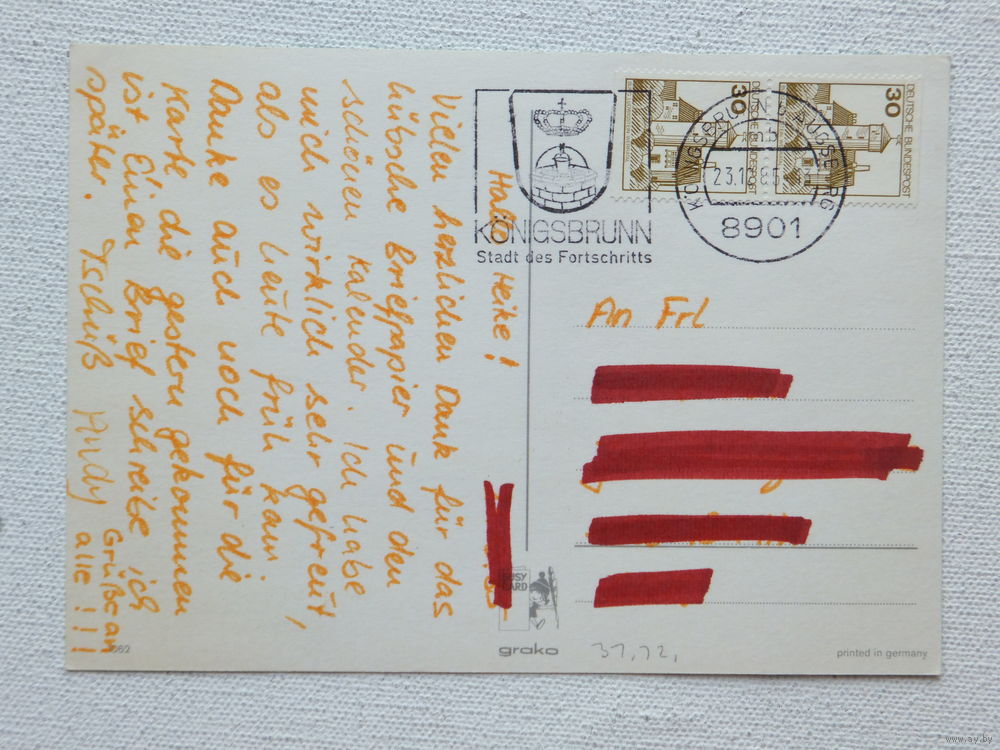 Hallo Heike!
Vielen herzlichen Dank für das
hübsche Briefpapier und den
schönen Kalender. Ich habe
mich wirklich sehr gefreut,
als es heute früh kam.
Danke auch noch für die
Karte, die gestern gekommen
ist. Einen Brief schreibe ich
später. Tschüß Andy
Grüße an
alle!!!
KÖNIGSBRUNN
Stadt des Fortschritts
KÖNIGSBRUNN AUGSBURG
8901
30
DEUTSCHE BUNDESPOST
30
DEUTSCHE BUNDESPOST
An Frl
BUSY
CARD
grako
31,12,
printed in germany
www.ay.by